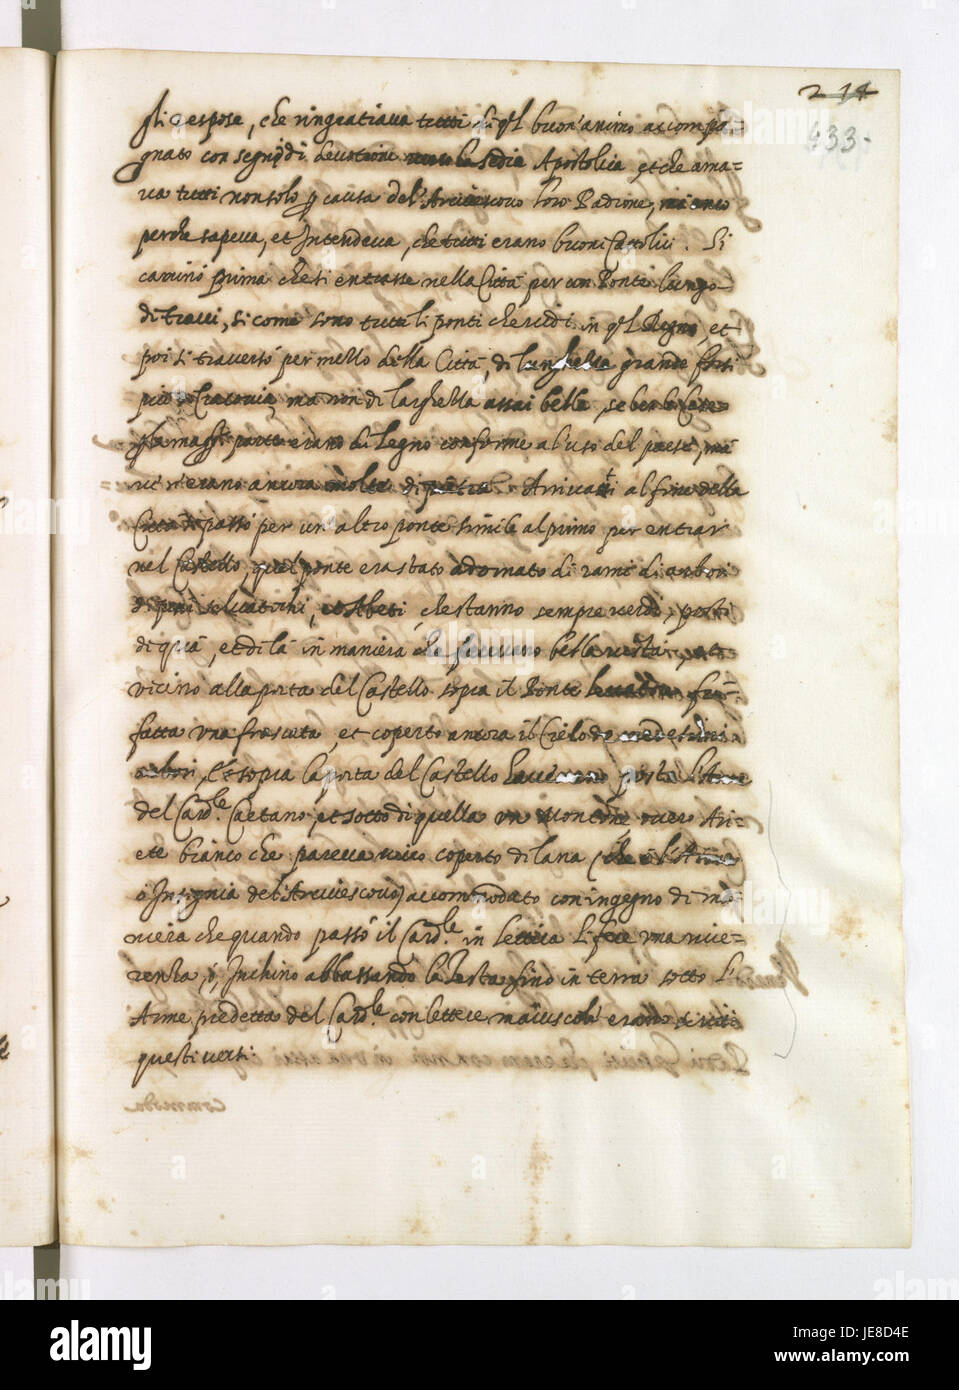 2 14
433-
gli respose, che ringratiava tutti di ql buon'animo accompa-
gnato con segni di devotione verso la sedia Apostolica, et che ama-
va tutti non solo p causa del'Arcivescovo loro Padrone, ma anco
perche sapeva, et Intendeva, che tutti erano buoni Catolici. Si
caminò prima che si entrasse nella Città per un Ponte lungo
di travi, si come sono tutti li ponti che vidi in ql Regno, et
poi si traversò per mezzo della Città, di lunghezza grande forsi
più Cracovia, ma non di larghezza assai bella, se ben le Case
la maggi parte erano di legno conforme al'uso del paese, ma
vi n'erano ancora molte di pietra. Arrivati al fine della
Città di passò per un'altro ponte simile al primo per entrar
nel Castello, qual ponte era stato adornato di rami di arbori
di pini selvatichi, et Abeti, che stanno sempre verdi, posti
di quà, et di là in maniera che facevano bella vista, et
vicino alla porta del Castello sopra il Ponte
fatta una frascata, et coperto ancora il Cielo de medesimi
arbori, Et sopra la porta del Castello havevano posto l'Arme
del Cardle. Caetano, et sotto di quella un Montone overo Ari-
ete bianco che pareva vivo coperto di lana (che è l'Arma
ò Insignia del'Arcivescovo) accommodato con ingegno di ma-
niera che quando passò il Cardle. in lettica li fece una rive-
renza, ò, Inchino abbassando la Testa fino in terra sotto l'
Arme predetta del Cardle. con lettere maiuscole erano scritti
questi versi.
alamy
Image ID: JE8D4E
www.alamy.com